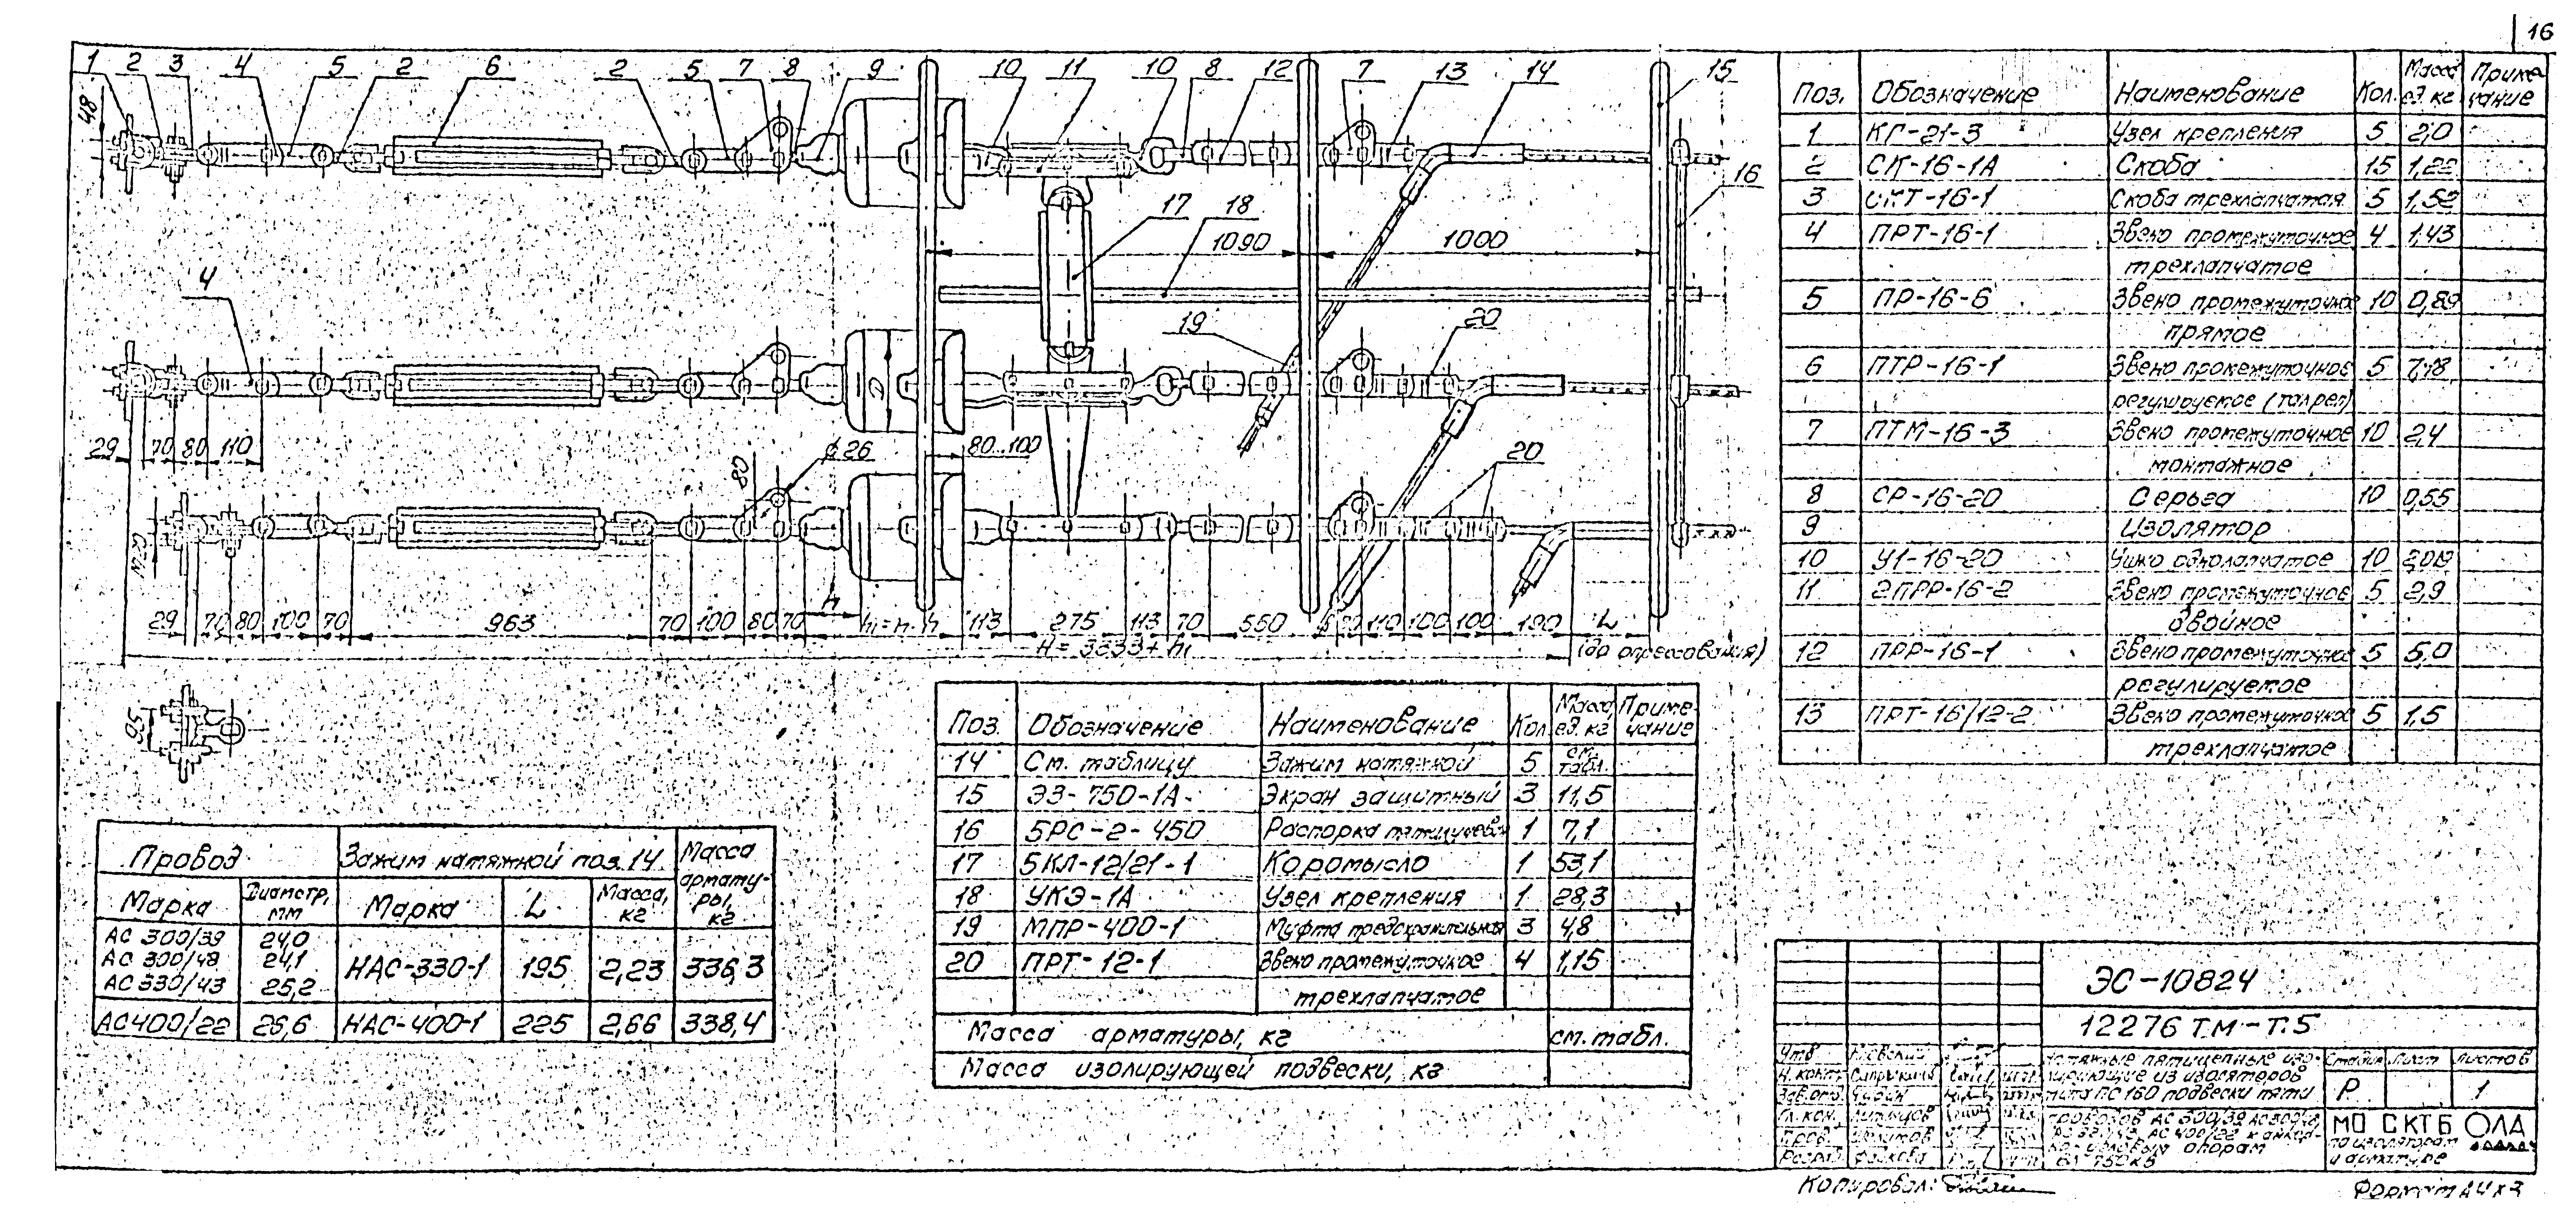 16
1 2 3 4 5 2 6 2 5 7 8 9 10 11 10 8 12 7 13 14 15
48
16
17 18
1090 1000
4
19 20
29 70 80 110
80 ⌀26 80...100 20
D
29 70 80 100 70 963 70 100 80 70 h 113 275 113 70 550 110 100 100 190 L
(до опрессования)
95
Поз. Обозначение Наименование Кол. Масса ед. кг Примечание
1 КГ-21-3 Узел крепления 5 2,0
2 СК-16-1А Скоба 15 1,22
3 СКТ-16-1 Скоба трехлапчатая 5 1,52
4 ПРТ-16-1 Звено промежуточное 4 1,43
трехлапчатое
5 ПР-16-6 Звено промежуточное 10 0,89
прямое
6 ПТР-16-1 Звено промежуточное 5 7,18
регулируемое (талреп)
7 ПТМ-16-3 Звено промежуточное 10 2,4
монтажное
8 СР-16-20 Серьга 10 0,55
9 Изолятор
10 У1-16-20 Ушко однолапчатое 10
11 2ПРР-16-2 Звено промежуточное 5 2,9
двойное
12 ПРР-16-1 Звено промежуточное 5 5,0
регулируемое
13 ПРТ-16/12-2 Звено промежуточное 5 1,5
трехлапчатое
Поз. Обозначение Наименование Кол. Масса ед. кг Примечание
14 См. таблицу Зажим натяжной 5 см. табл.
15 ЭЗ-750-1А Экран защитный 3 11,5
16 5РС-2-450 Распорка пятилучевая 1 7,1
17 5КЛ-12/21-1 Коромысло 1 53,1
18 УКЭ-1А Узел крепления 1 28,3
19 МПР-400-1 Муфта предохранительная 3 4,8
20 ПРТ-12-1 Звено промежуточное 4 1,15
трехлапчатое
Масса арматуры, кг см. табл.
Масса изолирующей подвески, кг
Провод Зажим натяжной поз. 14 Масса арматуры, кг
Марка Диаметр, мм Марка L Масса, кг
АС 300/39 24,0
АС 300/48 24,1 НАС-330-1 195 2,23 336,3
АС 330/43 25,2
АС400/22 26,6 НАС-400-1 225 2,66 338,4
ЭС-10824
12276 ТМ-Т.5
Утв.
Н.конт.
Гл. кон.
Пров.
Разраб.
Натяжные пятицепные изо-
лирующие из изоляторов
типа ПС 160 подвески пяти
проводов АС 300/39, АС300/48,
АС 330/43, АС 400/22 к анкер-
но-угловым опорам
ВЛ 750кВ
Стадия Лист Листов
Р 1
МО СКТБ
по изоляторам
и арматуре
Копировал:
Формат А4х3